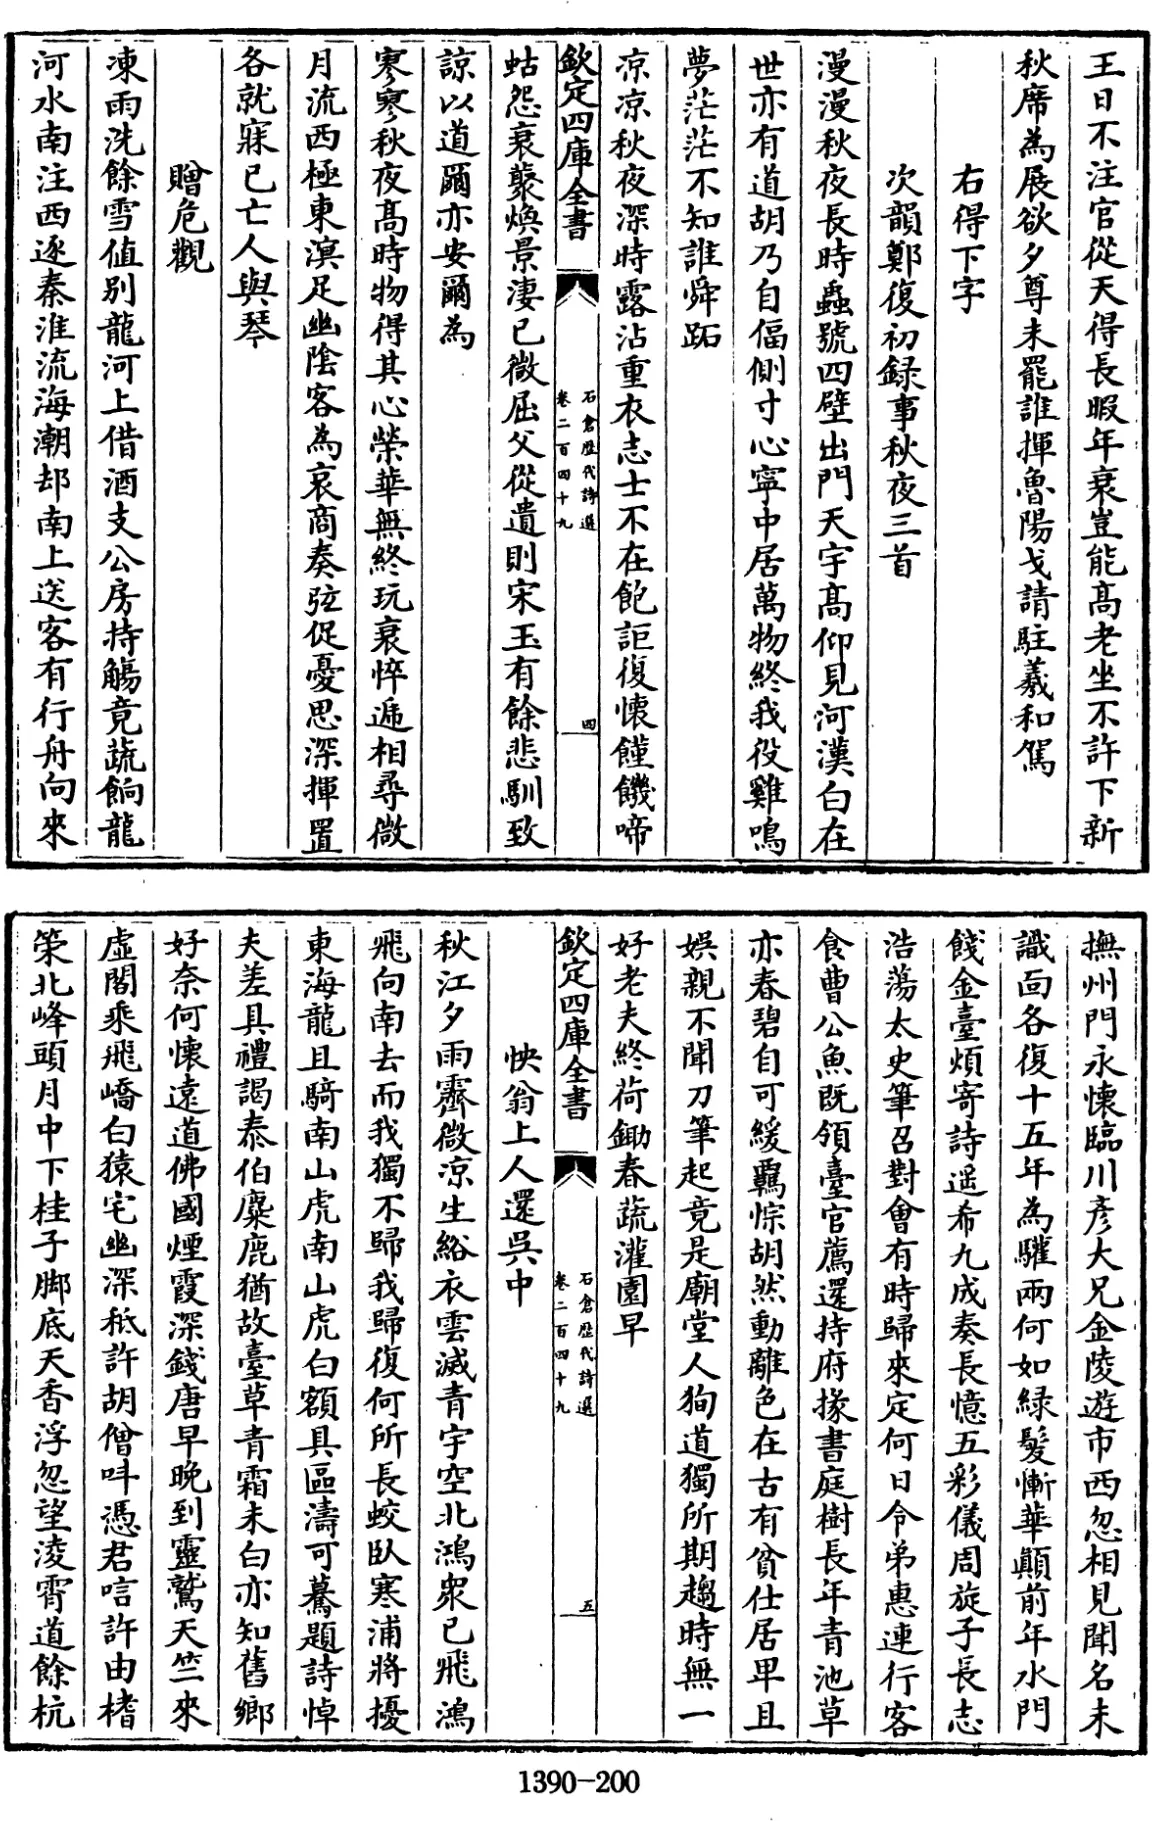 王日不注官從天得長暇年衰豈能髙老坐不許下新
秋席為展欲夕尊未罷誰揮魯陽戈請駐羲和駕
右得下字
次韻鄭復初録事秋夜三首
漫漫秋夜長時蟲號四壁出門天宇髙仰見河漢白在
世亦有道胡乃自偪側寸心寧中居萬物終我役雞鳴
夢茫茫不知誰舜跖
凉凉秋夜深時露沾重衣志士不在飽詎復懷饉饑啼
欽定四庫全書
石倉歷代詩選
卷二百四十九
四
蛄怨衰䕺煥景淒已微屈父從遺則宋玉有餘悲馴致
諒以道爾亦安爾為
寥寥秋夜髙時物得其心榮華無終玩衰悴遞相尋微
月流西極東溟足幽陰客為哀商奏弦促憂思深揮置
各就寐已亡人與琴
贈危觀
凍雨洗餘雪值别龍河上借酒支公房持觴竟蔬餉龍
河水南注西逐秦淮流海潮却南上送客有行舟向來
撫州門永懷臨川彦大兄金陵遊市西忽相見聞名未
識面各復十五年為驩兩何如緑髪慚華顛前年水門
餞金臺煩寄詩遥希九成奏長憶五彩儀周旋子長志
浩蕩太史筆召對會有時歸來定何日令弟惠連行客
食曹公魚既領臺官薦還持府掾書庭樹長年青池草
亦春碧自可緩羈悰胡然動離色在古有貧仕居卑且
娯親不聞刀筆起竟是廟堂人狥道獨所期趨時無一
好老夫終荷鋤春蔬灌園早
欽定四庫全書
石倉歷代詩選
卷二百四十九
五
怏翁上人還吳中
秋江夕雨霽微凉生綌衣雲滅青宇空北鴻衆已飛鴻
飛向南去而我獨不歸我歸復何所長蛟臥寒浦將擾
東海龍且騎南山虎南山虎白額具區濤可驀題詩悼
夫差具禮謁泰伯麋鹿猶故臺草青霜未白亦知舊鄉
好奈何懷逺道佛國煙霞深錢唐早晩到靈鷲天竺來
虚閣乘飛嶠白猿宅幽深秪許胡僧呌憑君唁許由稽
䇿北峰頭月中下桂子脚底天香浮忽望淩霄道餘杭
1390-200